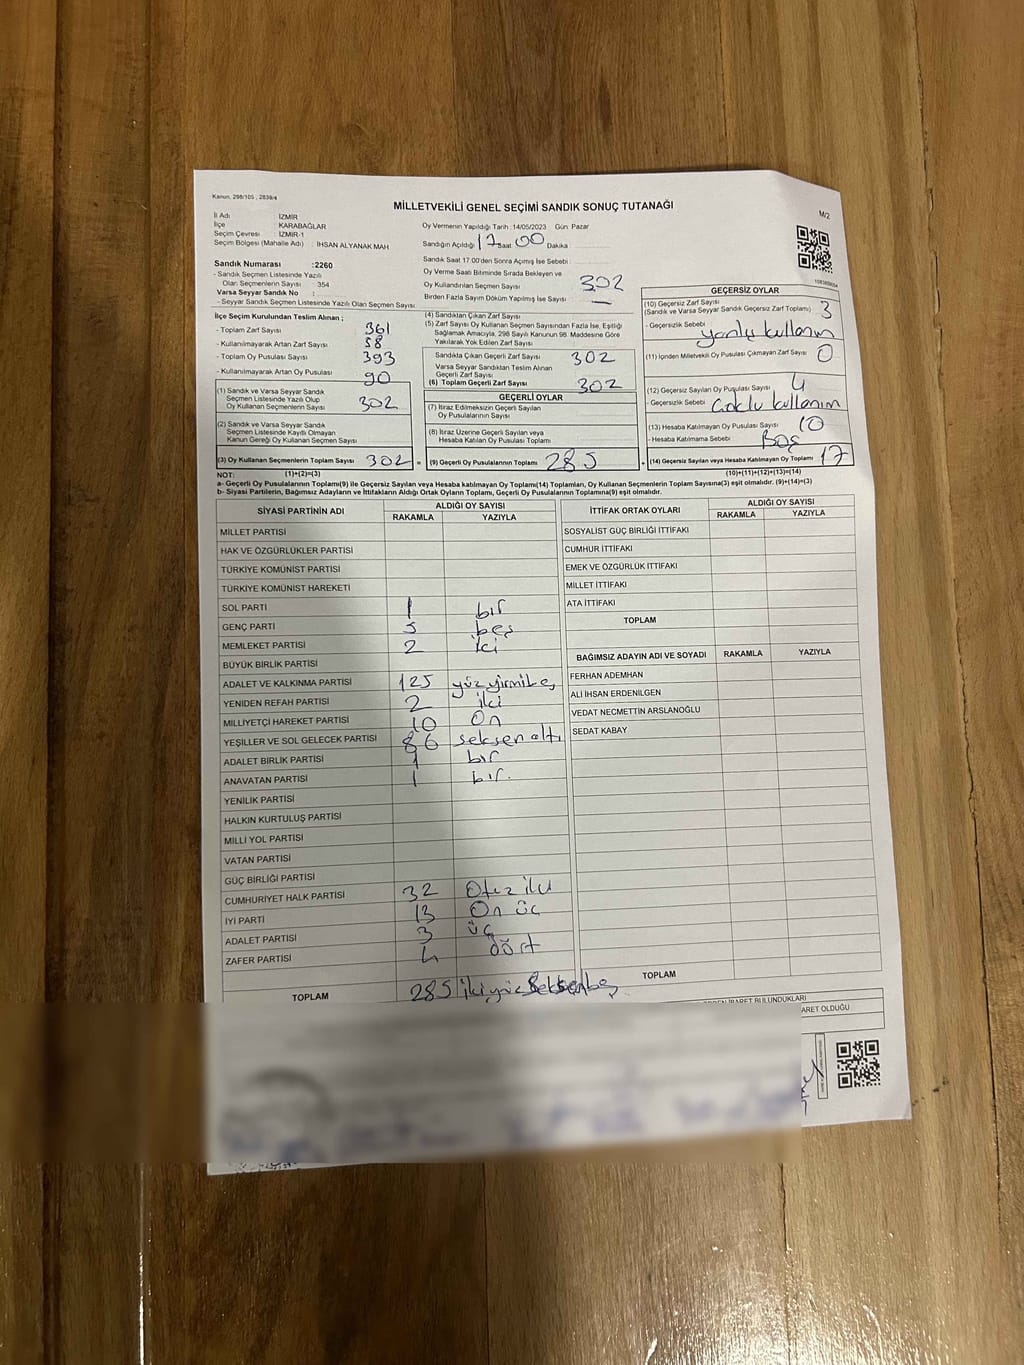 Kanun, 298/105 ; 2839/4
MİLLETVEKİLİ GENEL SEÇİMİ SANDIK SONUÇ TUTANAĞI
M/2
İl Adı : İZMİR
İlçe : KARABAĞLAR
Seçim Çevresi : İZMİR-1
Seçim Bölgesi (Mahalle Adı) : İHSAN ALYANAK MAH.
Sandık Numarası :2260
- Sandık Seçmen Listesinde Yazılı
Olan Seçmenlerin Sayısı : 354
Varsa Seyyar Sandık No :
- Seyyar Sandık Seçmen Listesinde Yazılı Olan Seçmen Sayısı:
Oy Vermenin Yapıldığı Tarih :14/05/2023 Gün: Pazar
Sandığın Açıldığı 17 Saat 00 Dakika :
Sandık Saat 17:00'den Sonra Açılmış İse Sebebi :
Oy Verme Saati Bitiminde Sırada Bekleyen ve
Oy Kullandırılan Seçmen Sayısı 302
Birden Fazla Sayım Döküm Yapılmış İse Sayısı : —
İlçe Seçim Kurulundan Teslim Alınan ;
- Toplam Zarf Sayısı 361
- Kullanılmayarak Artan Zarf Sayısı 58
- Toplam Oy Pusulası Sayısı 393
- Kullanılmayarak Artan Oy Pusulası 90
(1) Sandık ve Varsa Seyyar Sandık
Seçmen Listesinde Yazılı Olup
Oy Kullanan Seçmenlerin Sayısı 302
(2) Sandık ve Varsa Seyyar Sandık
Seçmen Listesinde Kayıtlı Olmayan
Kanun Gereği Oy Kullanan Seçmen Sayısı
(3) Oy Kullanan Seçmenlerin Toplam Sayısı 302 =
(4) Sandıktan Çıkan Zarf Sayısı
(5) Zarf Sayısı Oy Kullanan Seçmen Sayısından Fazla İse, Eşitliği
Sağlamak Amacıyla, 298 Sayılı Kanunun 98. Maddesine Göre
Yakılarak Yok Edilen Zarf Sayısı
Sandıkta Çıkan Geçerli Zarf Sayısı 302
Varsa Seyyar Sandıktan Teslim Alınan
Geçerli Zarf Sayısı
(6) Toplam Geçerli Zarf Sayısı 302
GEÇERLİ OYLAR
(7) İtiraz Edilmeksizin Geçerli Sayılan
Oy Pusulalarının Sayısı
(8) İtiraz Üzerine Geçerli Sayılan veya
Hesaba Katılan Oy Pusulası Toplamı
(9) Geçerli Oy Pusulalarının Toplamı 285 +
GEÇERSİZ OYLAR
(10) Geçersiz Zarf Sayısı
(Sandık ve Varsa Seyyar Sandık Geçersiz Zarf Toplamı) 3
- Geçersizlik Sebebi yanlış kullanım
(11) İçinden Milletvekili Oy Pusulası Çıkmayan Zarf Sayısı 0
(12) Geçersiz Sayılan Oy Pusulası Sayısı 4
- Geçersizlik Sebebi Çoklu kullanım
(13) Hesaba Katılmayan Oy Pusulası Sayısı 10
- Hesaba Katılmama Sebebi Boş
(14) Geçersiz Sayılan veya Hesaba Katılmayan Oy Toplamı 17
NOT: (1)+(2)=(3) (10)+(11)+(12)+(13)=(14)
a- Geçerli Oy Pusulalarının Toplamı(9) ile Geçersiz Sayılan veya Hesaba katılmayan Oy Toplamı(14) Toplamları, Oy Kullanan Seçmenlerin Toplam Sayısına(3) eşit olmalıdır. (9)+(14)=(3)
b- Siyasi Partilerin, Bağımsız Adayların ve İttifakların Aldığı Ortak Oyların Toplamı, Geçerli Oy Pusulalarının Toplamına(9) eşit olmalıdır.
SİYASİ PARTİNİN ADI ALDIĞI OY SAYISI
RAKAMLA YAZIYLA
MİLLET PARTİSİ
HAK VE ÖZGÜRLÜKLER PARTİSİ
TÜRKİYE KOMÜNİST PARTİSİ
TÜRKİYE KOMÜNİST HAREKETİ
SOL PARTİ 1 bir
GENÇ PARTİ 5 beş
MEMLEKET PARTİSİ 2 iki
BÜYÜK BİRLİK PARTİSİ
ADALET VE KALKINMA PARTİSİ 125 yüzyirmibeş
YENİDEN REFAH PARTİSİ 2 iki
MİLLİYETÇİ HAREKET PARTİSİ 10 On
YEŞİLLER VE SOL GELECEK PARTİSİ 86 seksen altı
ADALET BİRLİK PARTİSİ 1 bir
ANAVATAN PARTİSİ 1 bir.
YENİLİK PARTİSİ
HALKIN KURTULUŞ PARTİSİ
MİLLİ YOL PARTİSİ
VATAN PARTİSİ
GÜÇ BİRLİĞİ PARTİSİ
CUMHURİYET HALK PARTİSİ 32 Otuz iki
İYİ PARTİ 13 On üç
ADALET PARTİSİ 3 üç
ZAFER PARTİSİ 4 dört
TOPLAM 285 ikiyüz seksenbeş
İTTİFAK ORTAK OYLARI ALDIĞI OY SAYISI
RAKAMLA YAZIYLA
SOSYALİST GÜÇ BİRLİĞİ İTTİFAKI
CUMHUR İTTİFAKI
EMEK VE ÖZGÜRLÜK İTTİFAKI
MİLLET İTTİFAKI
ATA İTTİFAKI
TOPLAM
BAĞIMSIZ ADAYIN ADI VE SOYADI RAKAMLA YAZIYLA
FERHAN ADEMHAN
ALİ İHSAN ERDENİLGEN
VEDAT NECMETTİN ARSLANOĞLU
SEDAT KABAY
TOPLAM
İBARET BULUNDUKLARI
ARET OLDUĞU